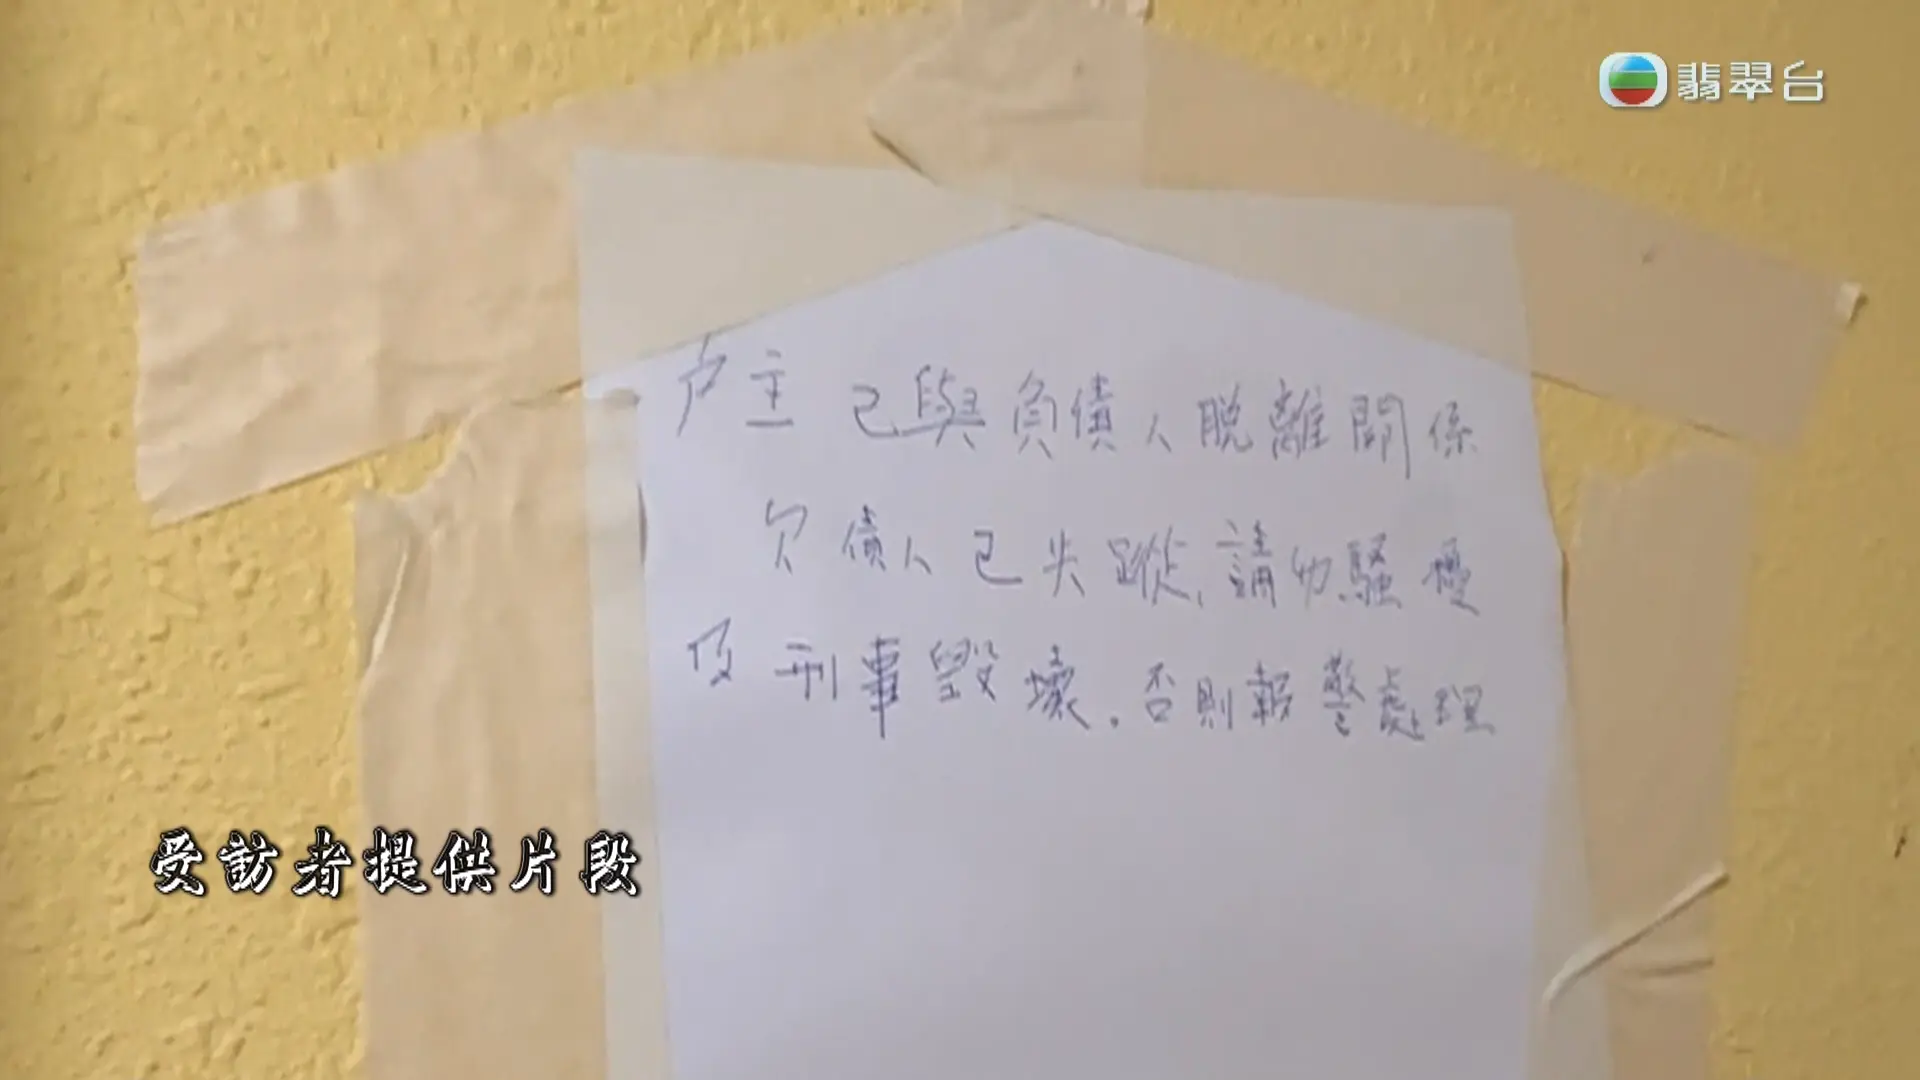 翡翠台
戶主 已與負債人脫離關係
欠債人已失蹤,請勿騷擾
及刑事毀壞.否則報警處理
受訪者提供片段